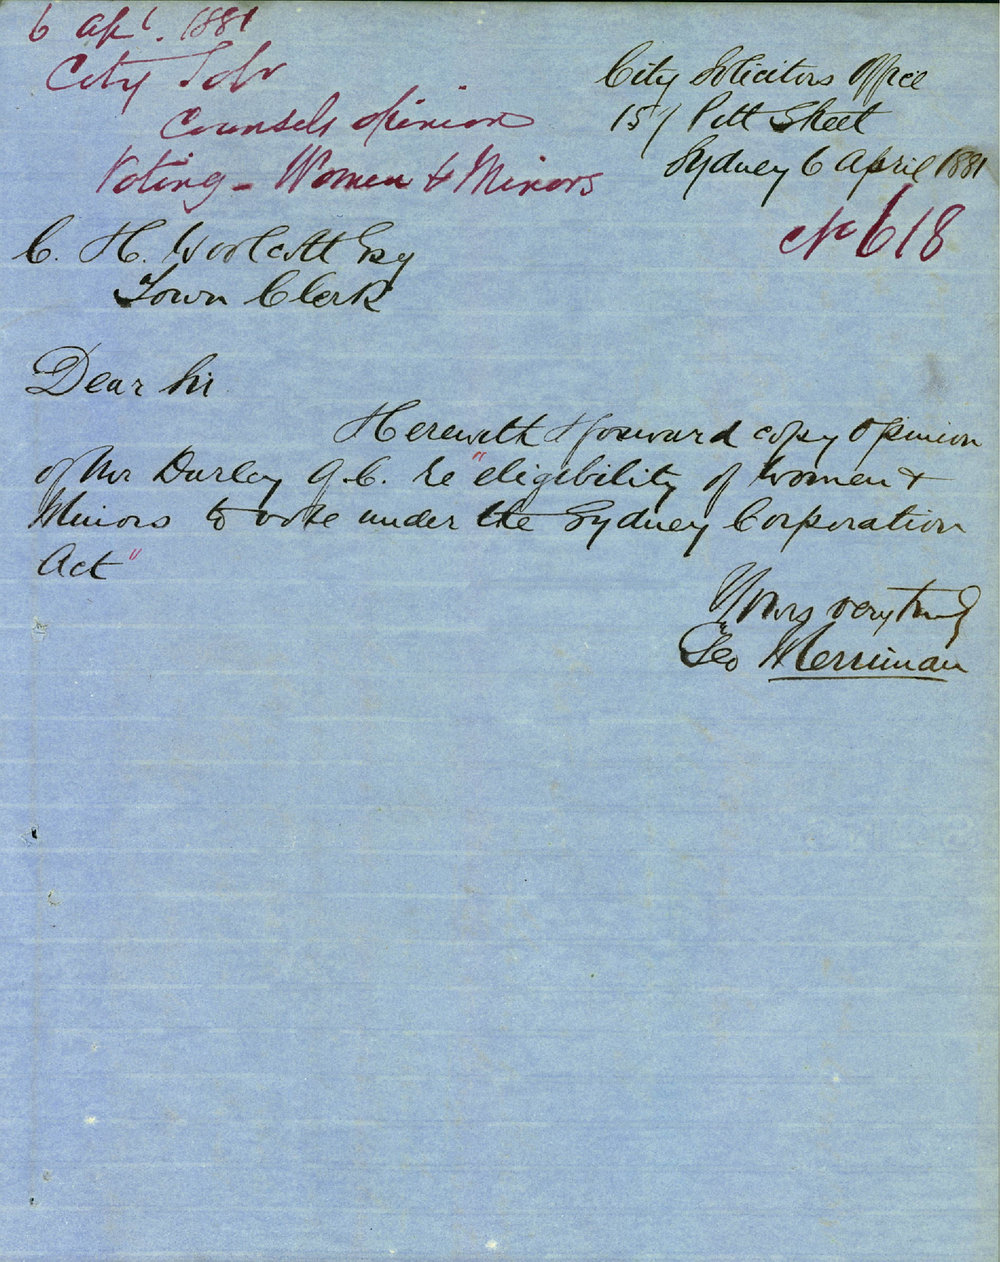 6 Apl. 1881
City Solr
Counsels opinion
Voting - Women & Minors
City Solicitors Office
157 Pitt Street
Sydney 6 April 1881
No 618
C. H. Woolcott Esq
Town Clerk
Dear Sir
Herewith I forward copy opinion
of Mr Darley Q.C. re "eligibility of women &
Minors to vote under the Sydney Corporation
Act"
Yours very truly
Geo Merriman